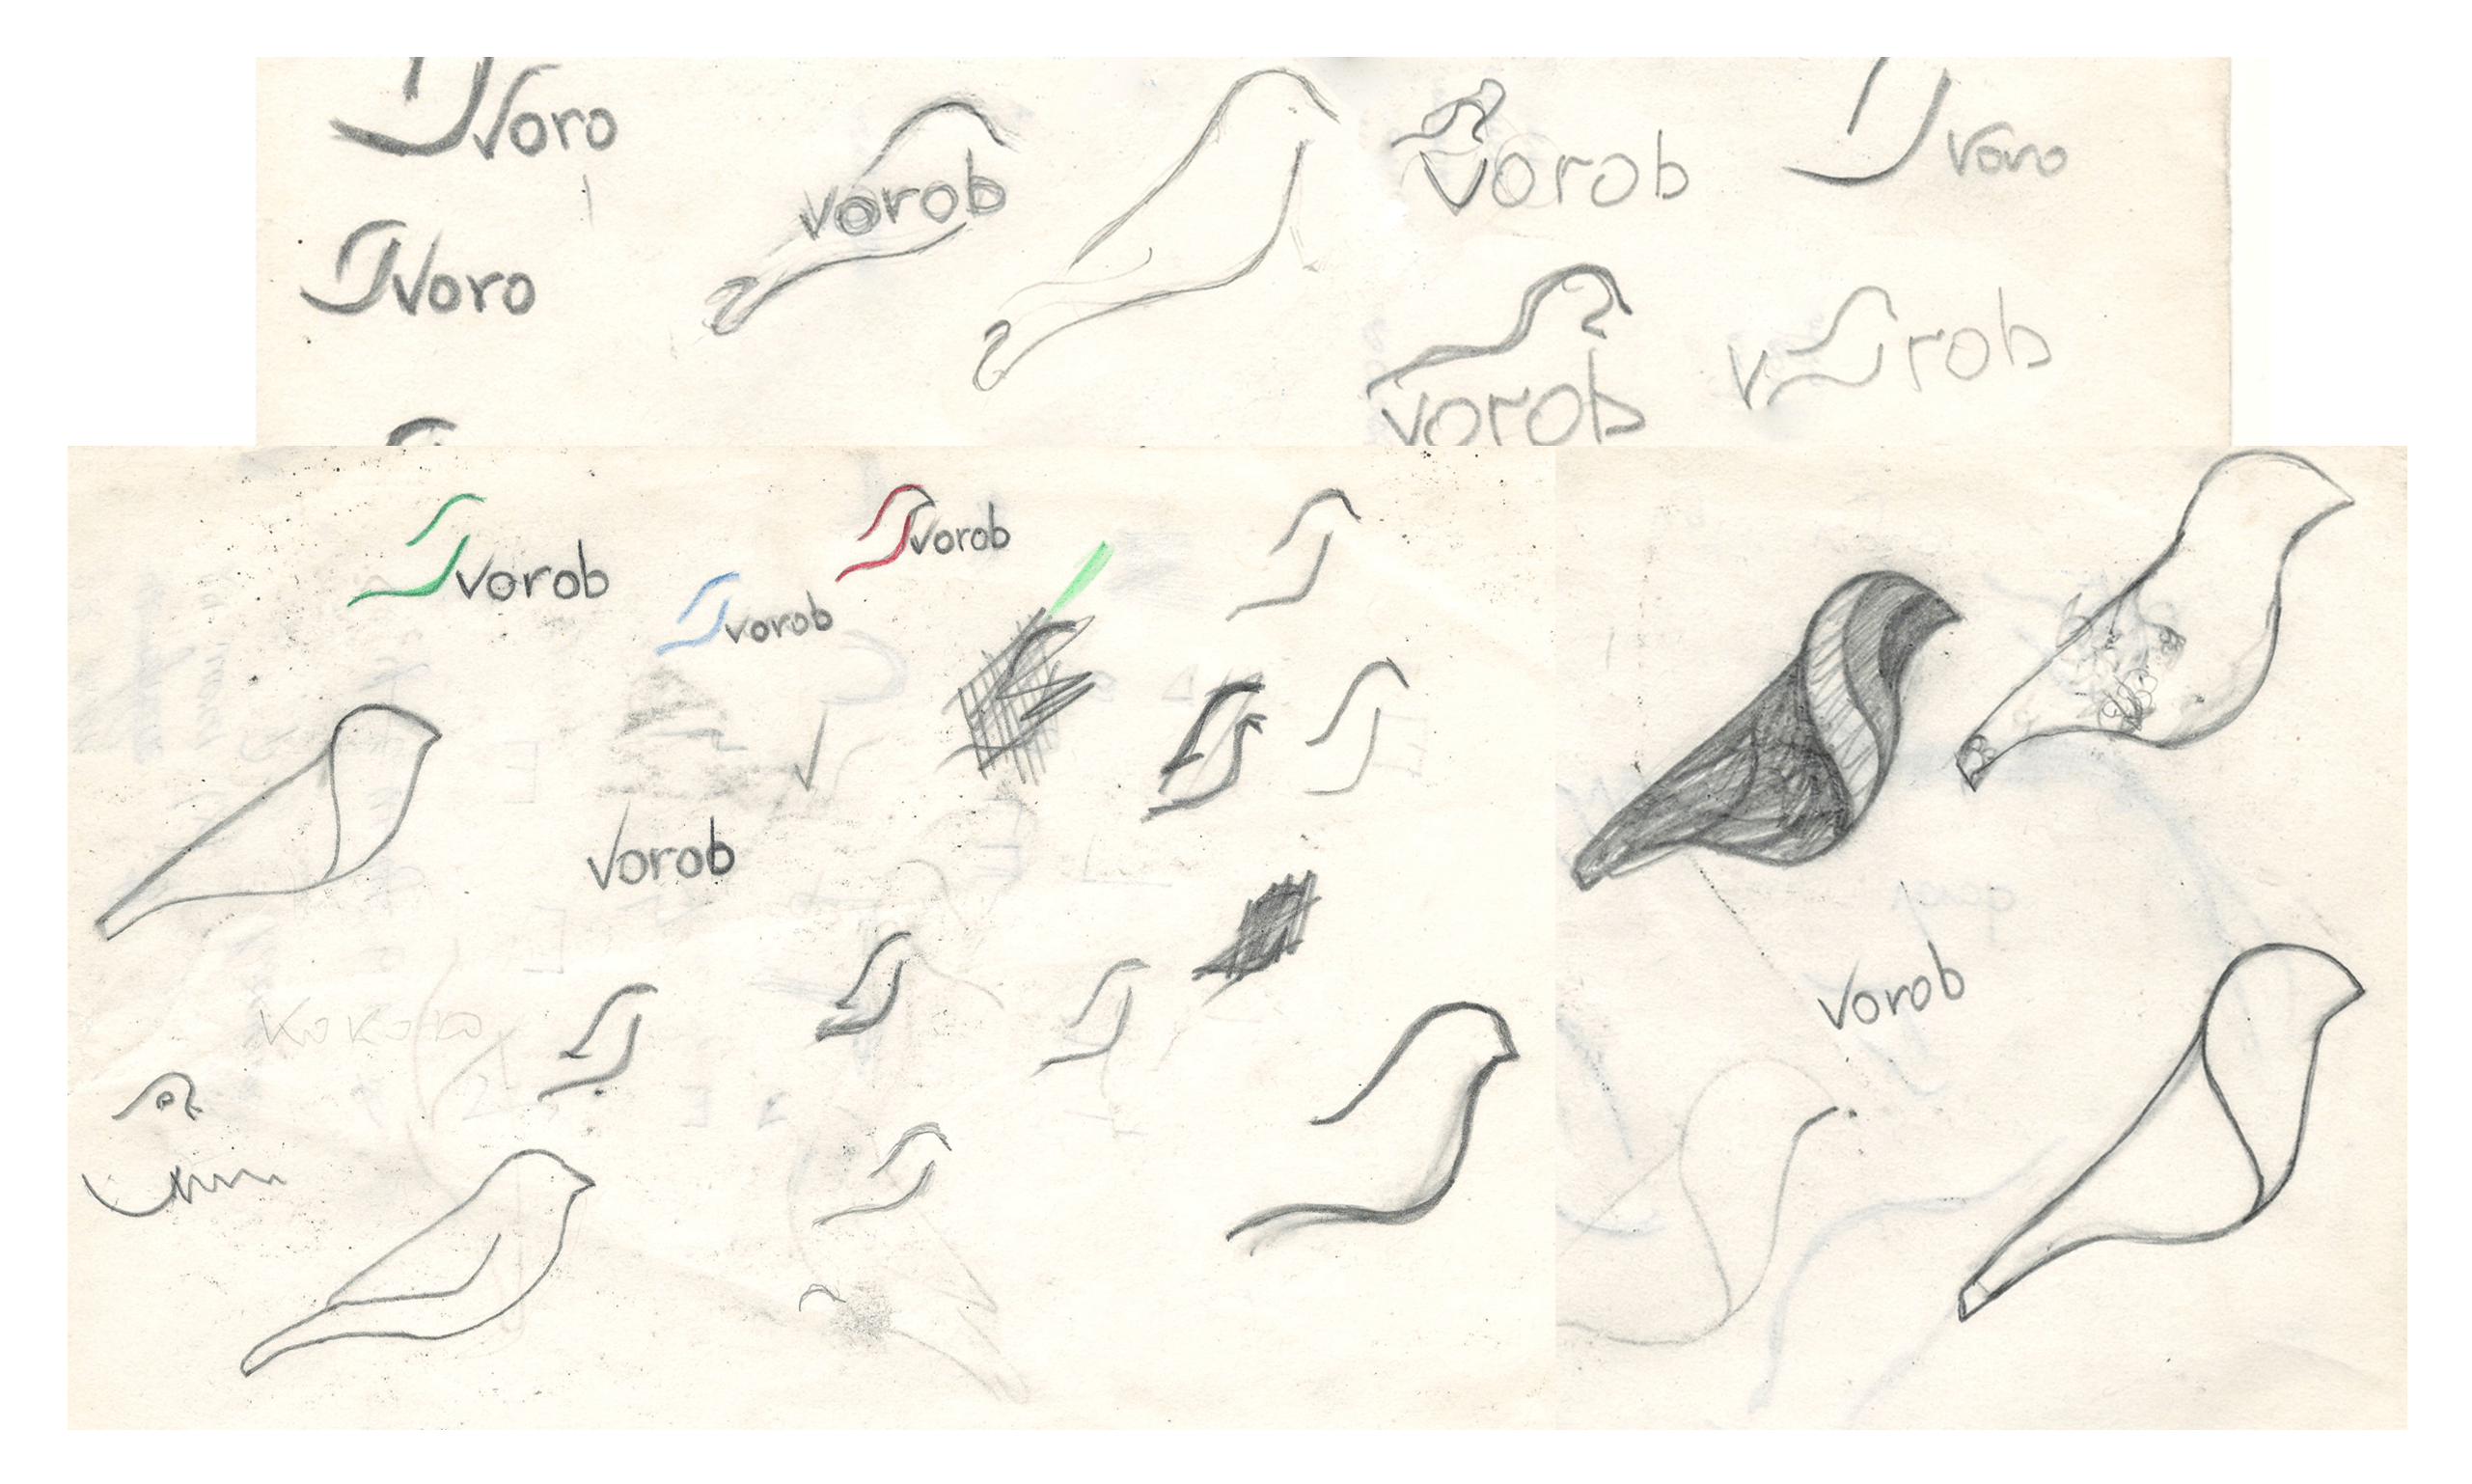 Voro
vorob
vorob
voro
Voro
vorob
v rob
vorob
vorob
vorob
Vorob
Vorob